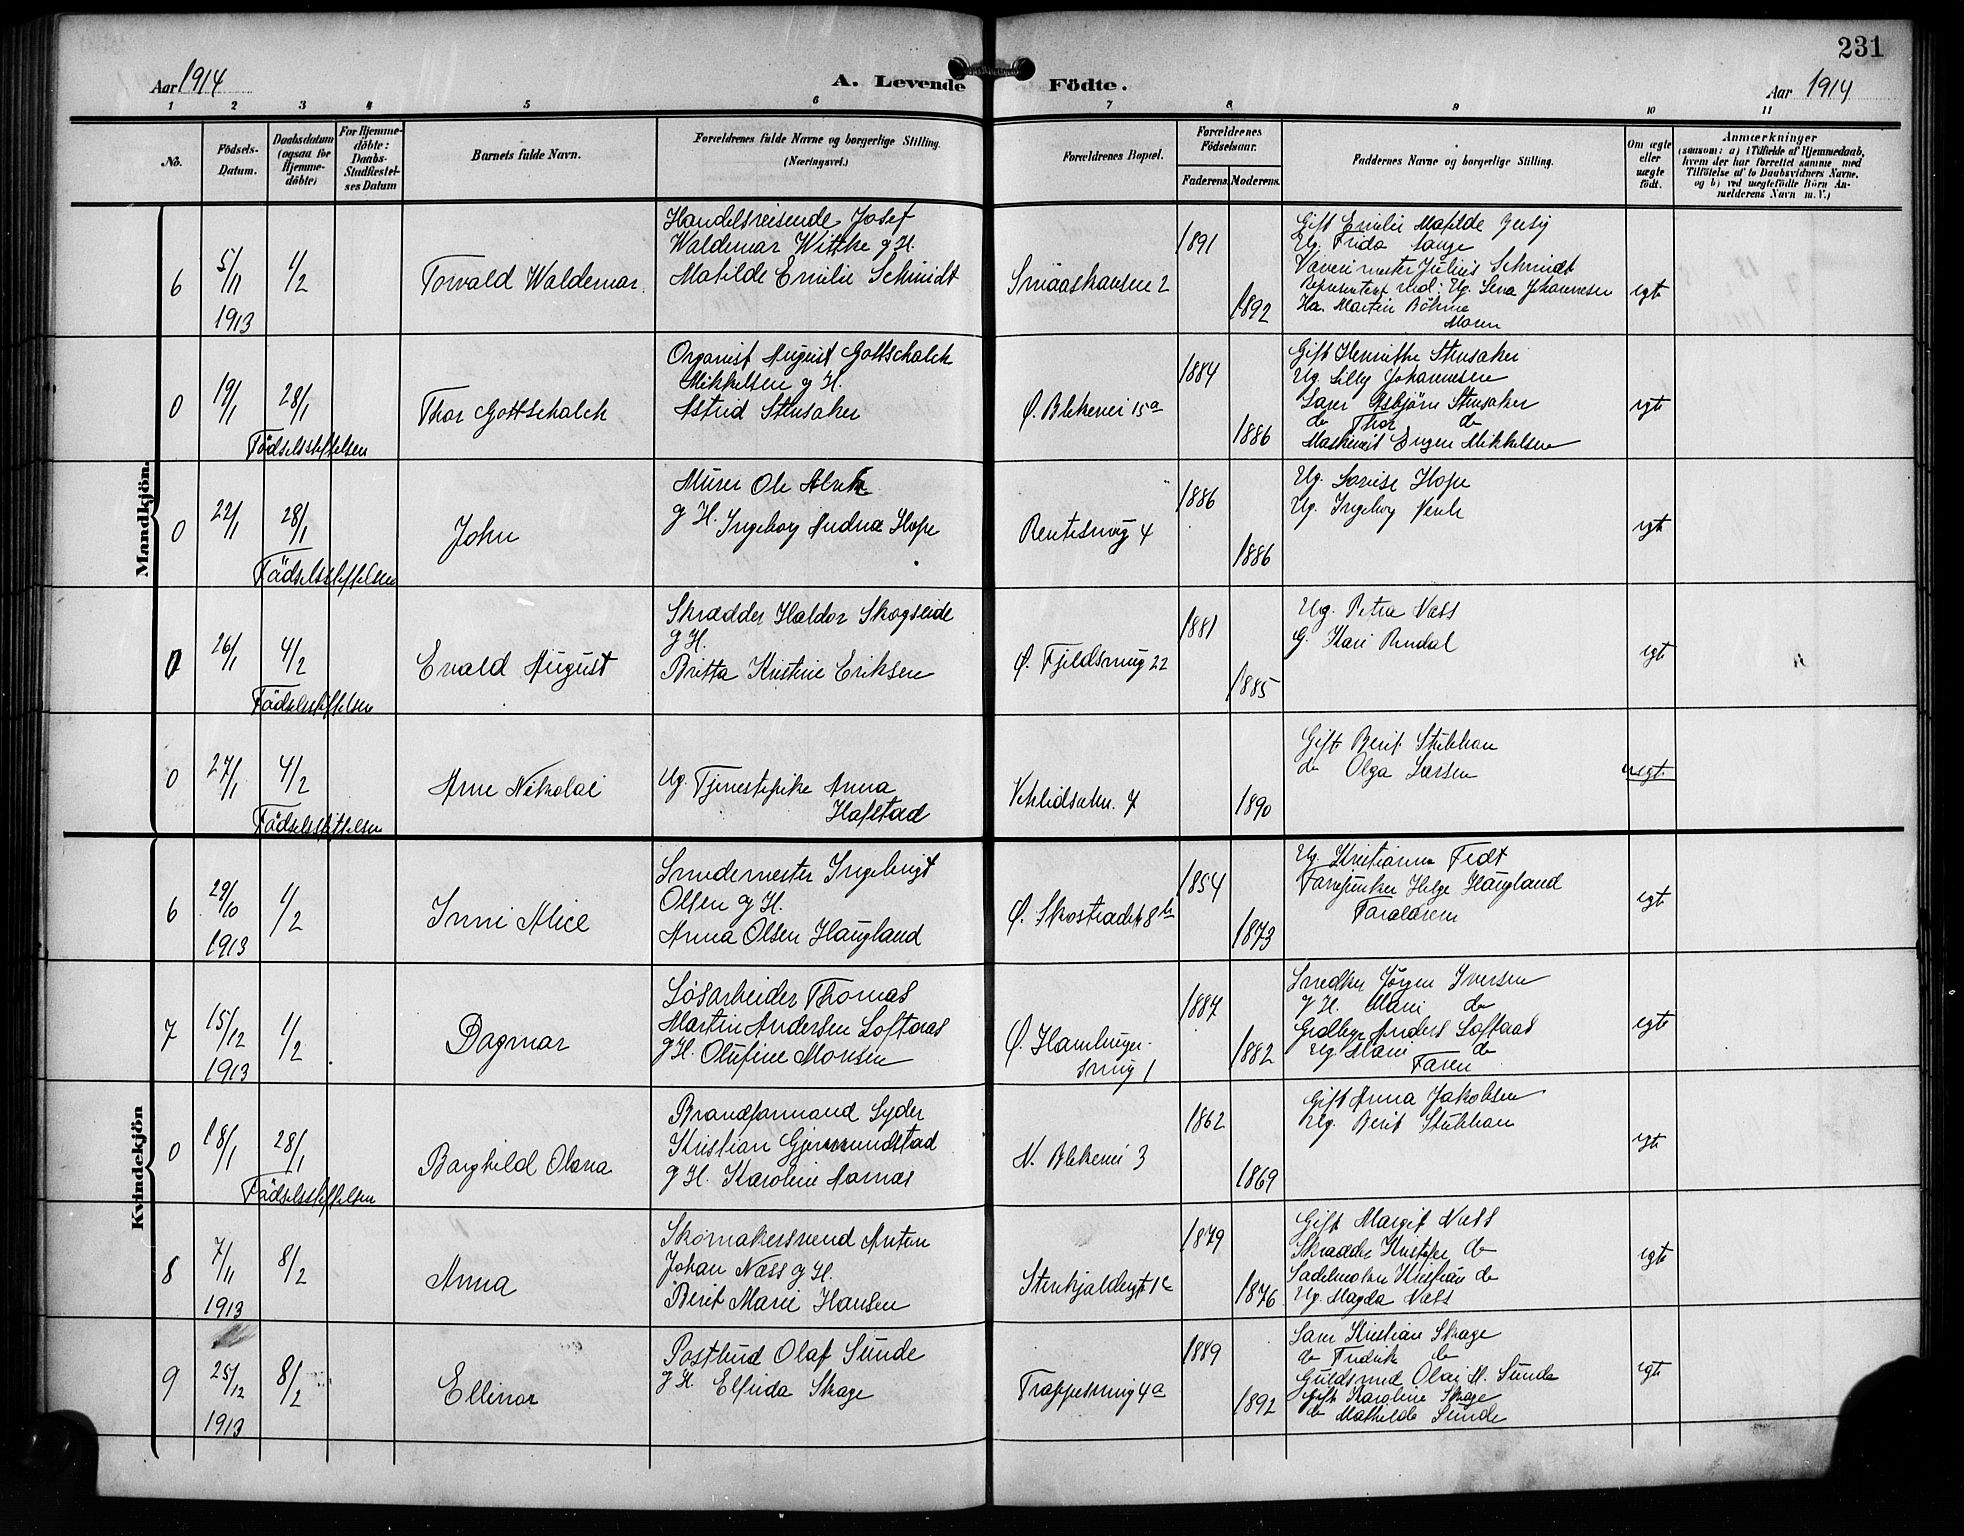 231
Aar 1914
A. Levende Födte.
Aar 1914
1 2 3 4 5 6 7 8 9 10 11
No.
Födsels-
Datum.
Daabsdatum
(ogsaa for
Hjemme-
döbte)
For Hjemme-
döbte:
Daabs-
Stadfæstel-
ses Datum
Barnets fulde Navn.
Forældrenes fulde Navne og borgerlige Stilling.
(Næringsvei.)
Forældrenes Bopæl.
Forældrenes
Födselsaar.
Faderens. Moderens.
Faddernes Navne og borgerlige Stilling.
Om ægte
eller
uægte
födt.
Anmærkninger
(saasom: a) i Tilfælde af Hjemmedaab,
hvem der har forrettet samme med
Tilföielse af to Daabsvidners Navne,
og b) ved uægtefödte Börn An-
melderens Navn m. V.)
Mandkjön.
6
5/11
1913
1/2
Torvald Waldemar
Handelsreisende Josef
Waldemar Wittke g H.
Matilde Emilie Schmidt
Smaaskansen 2
1891
1892
Gift Emilie Matilde
Ug. Frida Lange
Julius Schmidt
Representert ved: Ug. Lena Johannesen
Martin Böhme
Moren
egte
0
19/1
28/1
Födselsstiftelsen
Thor Gottschalck
Organist August Gottschalck
Mikkelsen g H.
Astrid Stensaker
Ø. Blekevei 15a
1884
1886
Gift Henriette Stensaker
Ug. Lilly Johannesen
Asbjörn Stensaker
do Thor do
Maskinist Eugen Mikkelsen
egte
0
22/1
28/1
Födselsstiftelsen
John
Murer Ole
g H. Ingeborg Andrea Hope
4
1886
1886
Ug. Lovise Hope
Ug. Ingeborg
egte
0
26/1
4/2
Födselsstiftelsen
Evald August
Skrædder Haldor Skogseide
g H.
Britta Kristine Eriksen
Ø. Fjeldsmug 22
1881
1885
Ug. Petra Næss
G. Kari
egte
0
27/1
4/2
Födselsstiftelsen
Arne Nikolai
Ug Tjenestepike Anna
Hafstad
7
1890
Gift Berit Stubhau
do Olga Larsen
uegte
Kvindekjön
6
29/10
1913
1/2
Inni Alice
Smedemester Ingebrigt
Olsen g H.
Anna Olsen Haugland
Ø. Skostrædet 8b
1854
1873
Ug Kristianna Fedt
Helge Haugland
Forældrene
egte
7
15/12
1913
1/2
Dagmar
Løsarbeider Thomas
Martin Andersen Loftaas
g H. Olufine Monsen
Ø. Hamburger-
smug 1
1887
1882
Snedker Jørgen Iversen
g H. Marie do
Anders Loftaas
Ug Marie do
Faren
egte
0
18/1
28/1
Födselsstiftelsen
Borghild Olava
Brandformand Syder
Kristian Gjermundstad
g H. Karoline Aarnæs
N. Blekevei 3
1862
1869
Gift Anna Jakobsen
Ug. Berit Stubhau
egte
8
7/11
1913
8/2
Anna
Skomakersvend Anton
Johan Næss g H.
Berit Marie Hansen
Stenkjeldergt 1c
1879
1876
Gift Margit Næss
Skrædder Kristofer do
Sadelmaker Kristian do
Ug. Magda Næss
egte
9
25/12
1913
8/2
Ellinor
Postbud Olaf Sunde
g H. Elfrida Skage
Trappesmug 4a
1889
1892
Kristian Skage
do Fredrik do
Guldsmed Olai M. Sunde
Gift Karoline Skage
do Mathilde Sunde
egte